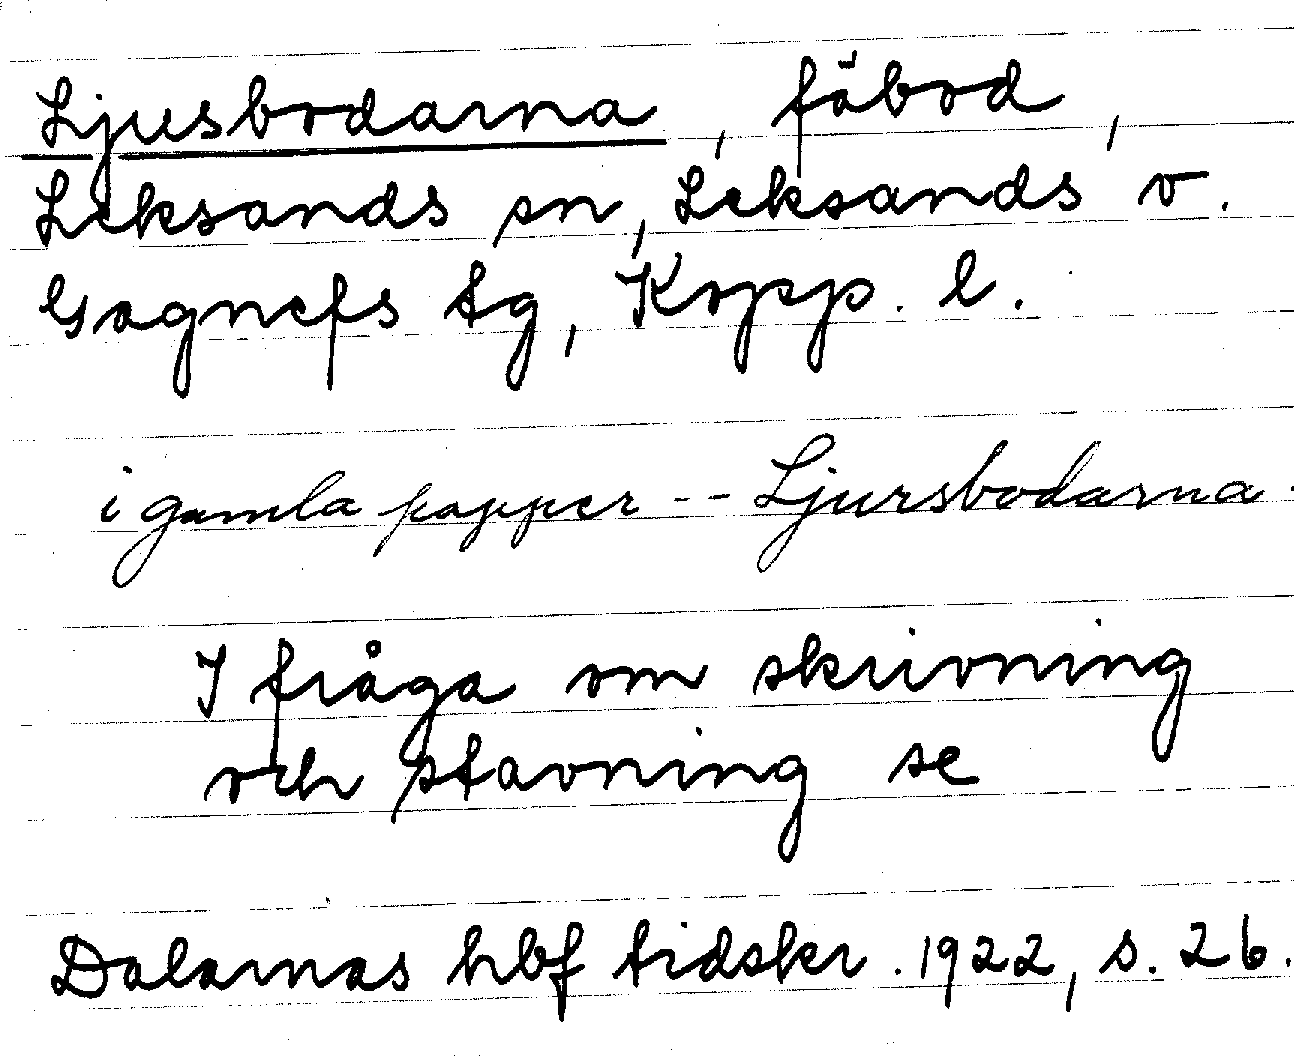 Ljusbodarna, fäbod,
Leksands sn, Leksands o.
Gagnefs tg, Kopp. l.
i gamla papper -- Ljursbodarna.
I fråga om skrivning
och stavning se
Dalarnas hbf tidskr. 1922, s. 26.